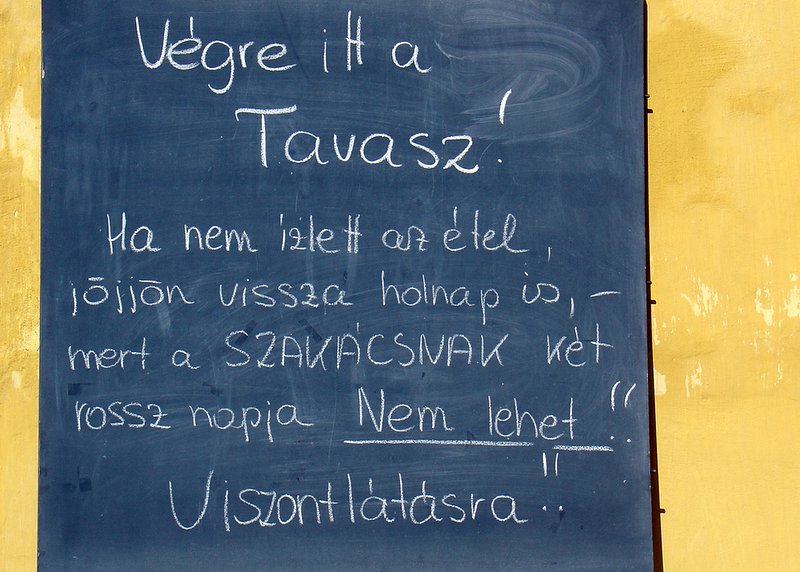 Végre itt a
Tavasz!
Ha nem izlett az étel,
jōjjōn vissza holnap is, –
mert a SZAKÁCSNAK két
rossz napja Nem lehet!!
Viszontlátásra!!